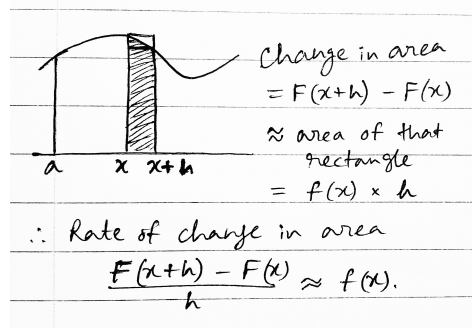 Change in area
= F(x+h) - F(x)
≈ area of that
rectangle
= f(x) × h
a x x+h
∴ Rate of change in area
F(x+h) - F(x)
h
≈ f(x).